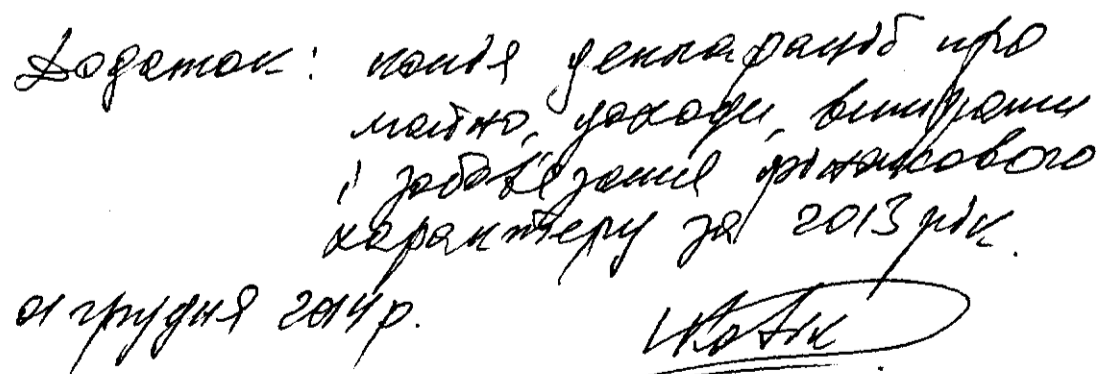 Додаток: копія декларації про
майно, доходи, витрати
і зобов'язання фінансового
характеру за 2013 рік.
01 грудня 2014р.